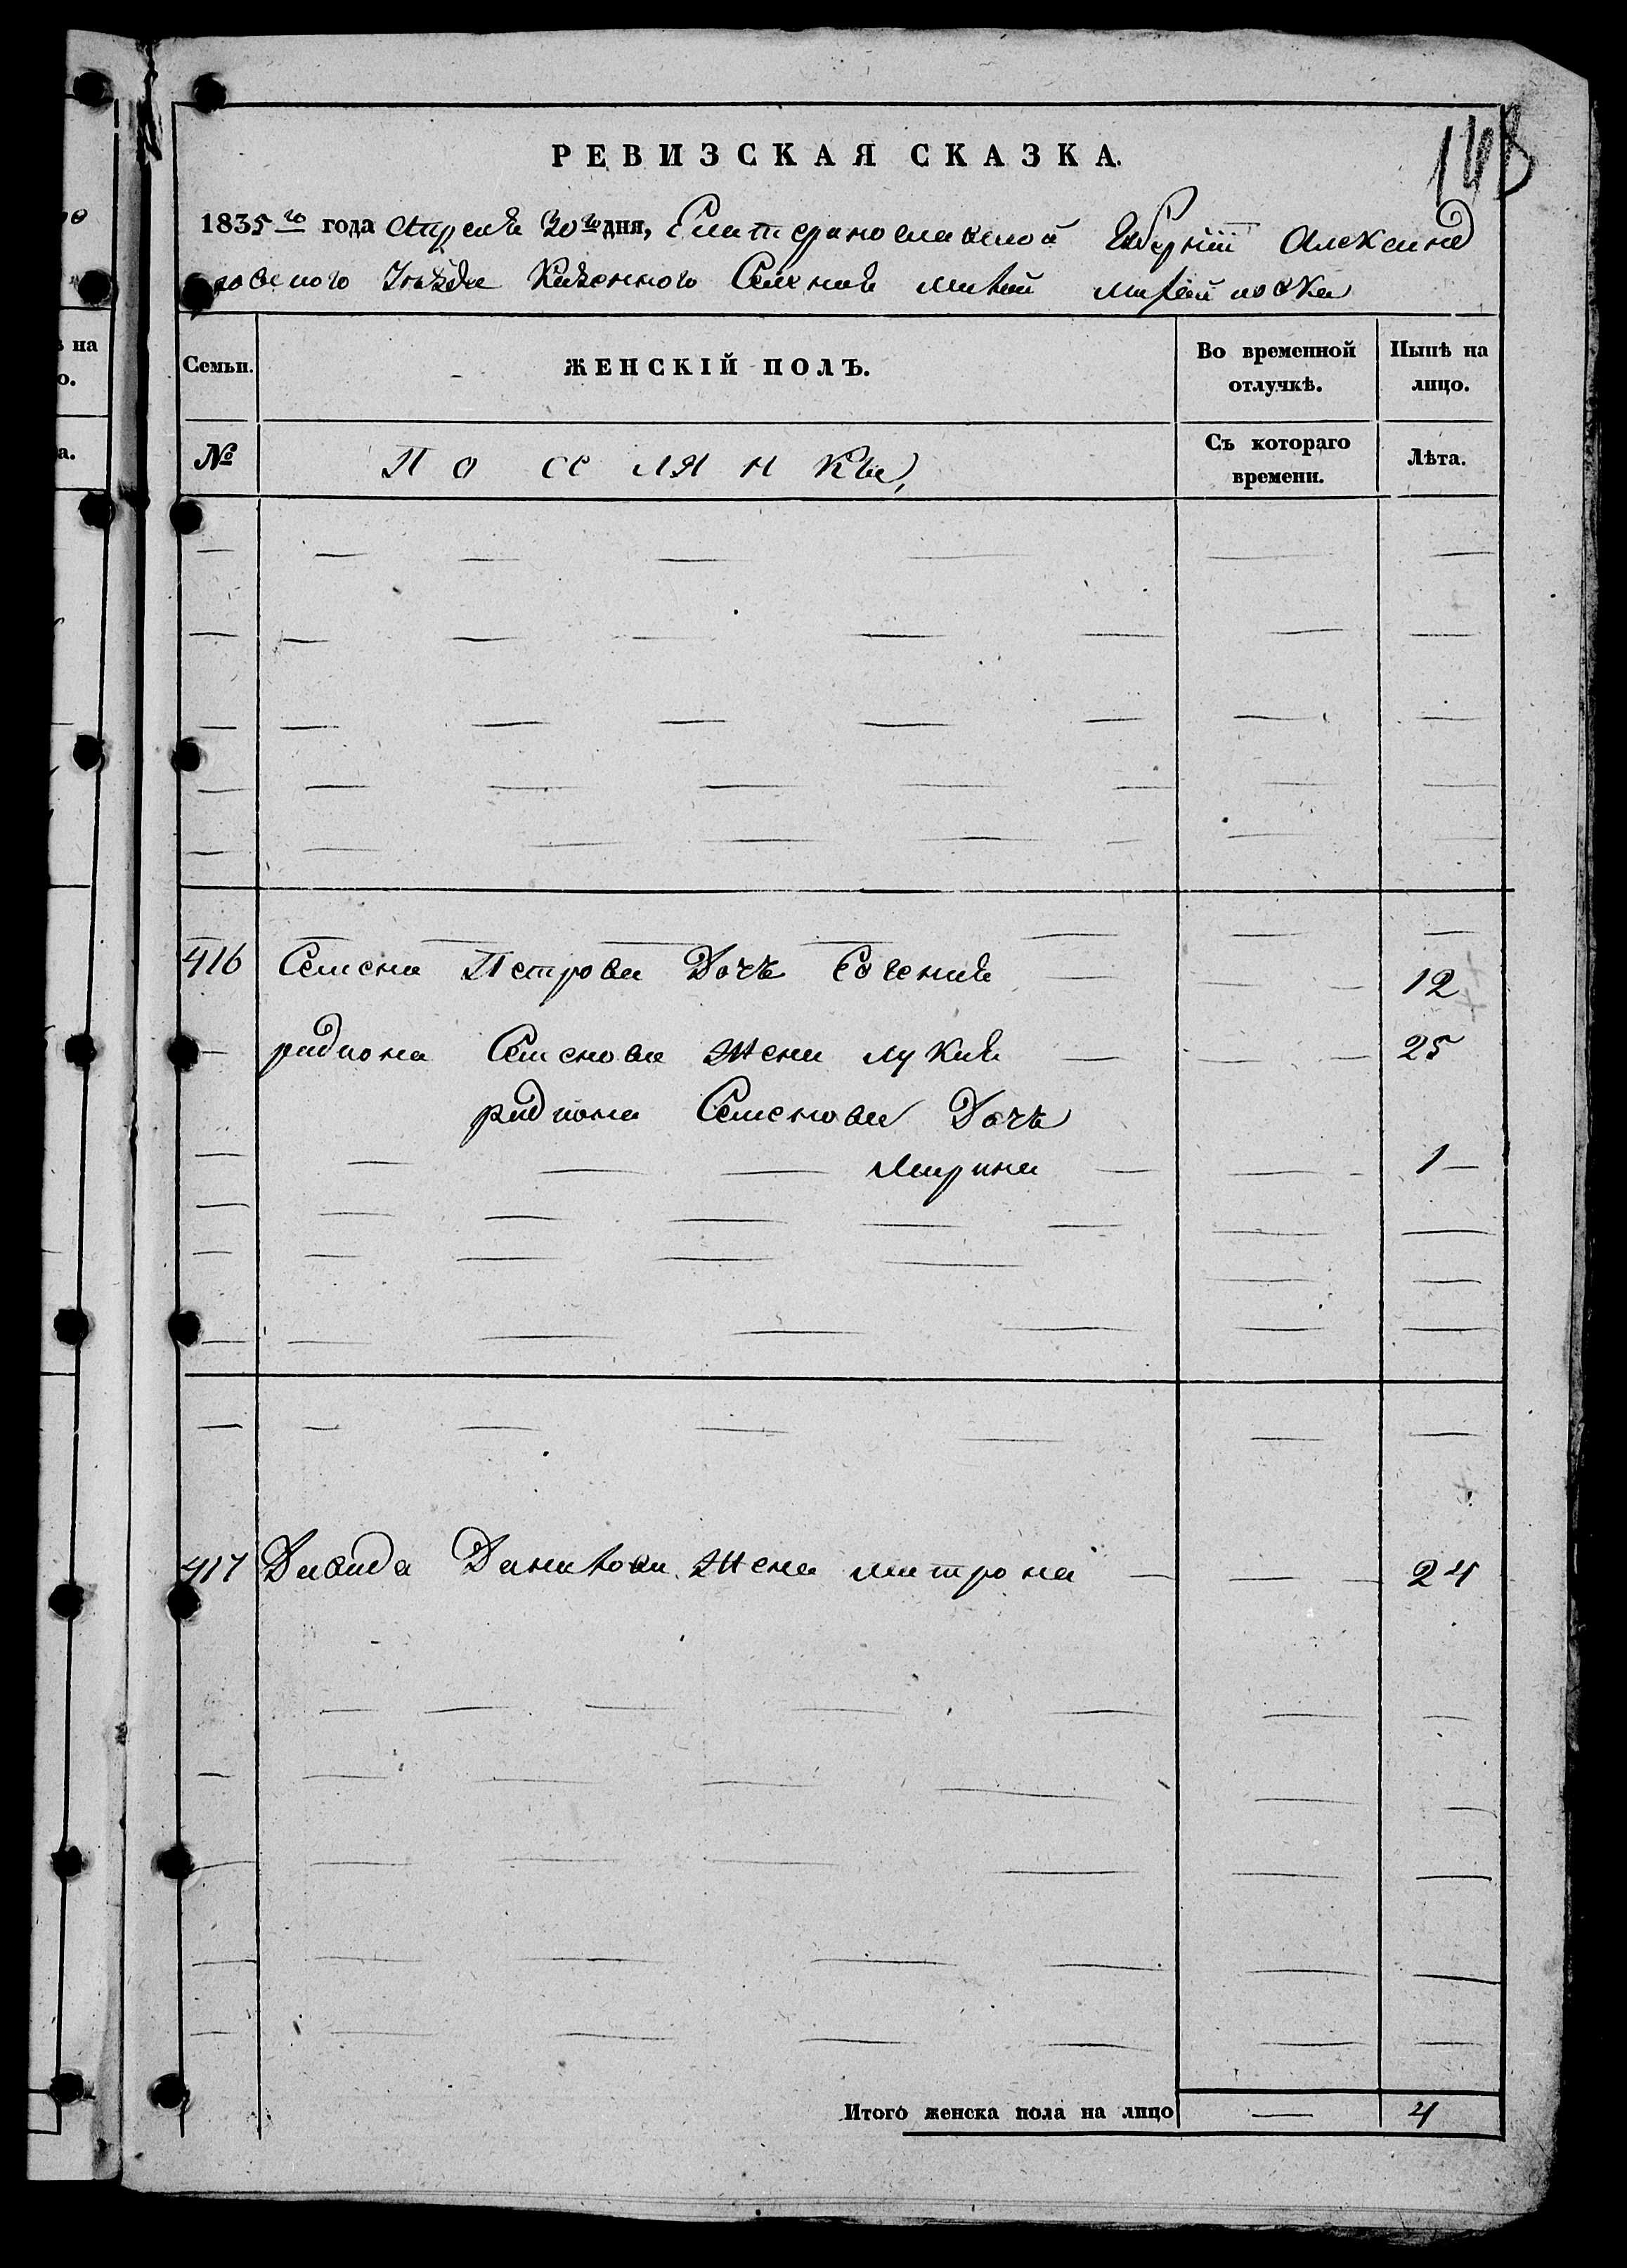 148
РЕВИЗСКАЯ СКАЗКА.
1835го года Апреля 30го дня, Екатеринославской Губернии Александ
ровского Уезда Казенного Селения малой михайловки
Семьи. ЖЕНСКІЙ ПОЛЪ. Во временной отлучкѣ. Нынѣ на лицо.
№ Поселянки, Съ котораго времени. Лѣта.
416 Семена Петрова Дочь Евгения 12
радиона Семенова Жена лукия 25
радиона Семенова Дочь
Марина 1
417 Давида Данилова Жена матрона 24
Итого женска пола на лицо — 4
ѣ на
о.
а.